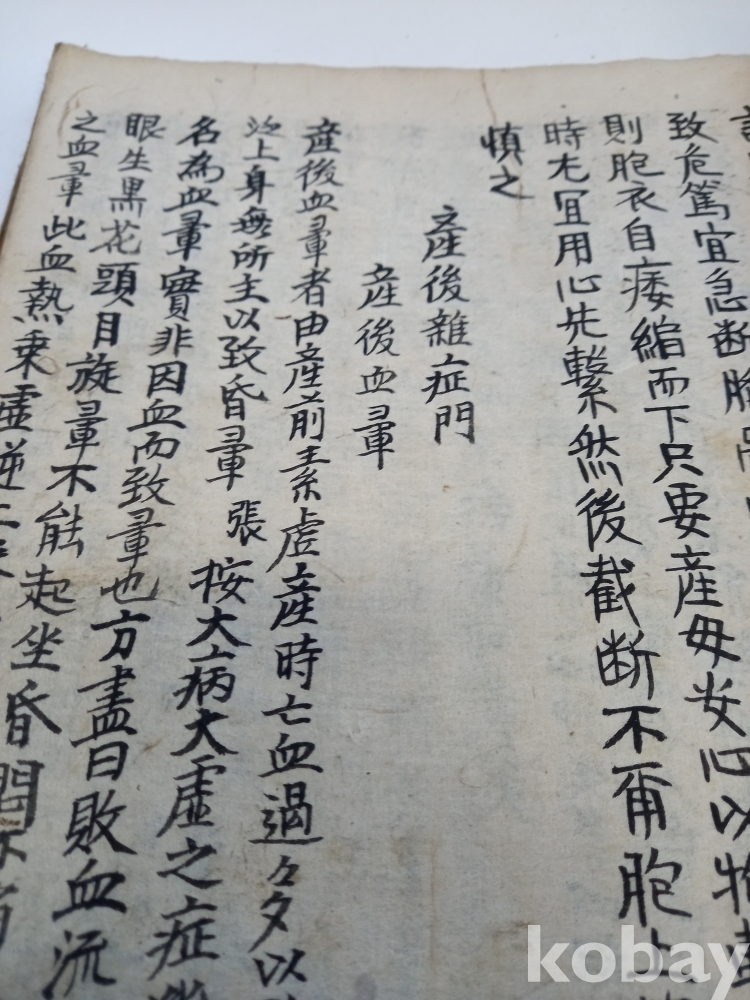 致危篤宜急断
則胞衣自痿縮而下只要産母安心以物
時尤宜用心先繫然後截断不甭胞上
慎之
産後雜症門
産後血暈
産後血暈者由産前素虚産時亡血過々多以
迯上身無所主以致昏暈 張按大上病大虛之症
名為血暈實非因血而致暈也方盡曰敗血流
眼生黒花頭目旋暈不能起坐昏悶不
之血暈此血熱乗虛逆上
kobay